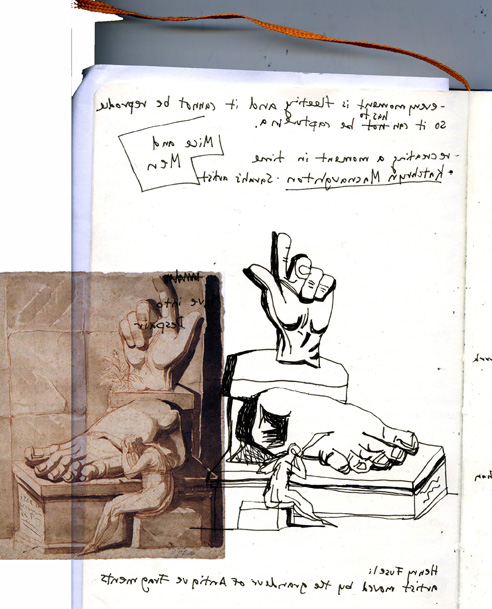 - every moment is fleeting and it cannot be reprodu
has to
so it can not be captured
Mice and
Men
- recreating a moment in time
• Katchryn Macnaughton - Sarah's artist
ve into
Despair
Henry Fuseli:
artist moved by the grandeur of Antique Fragments